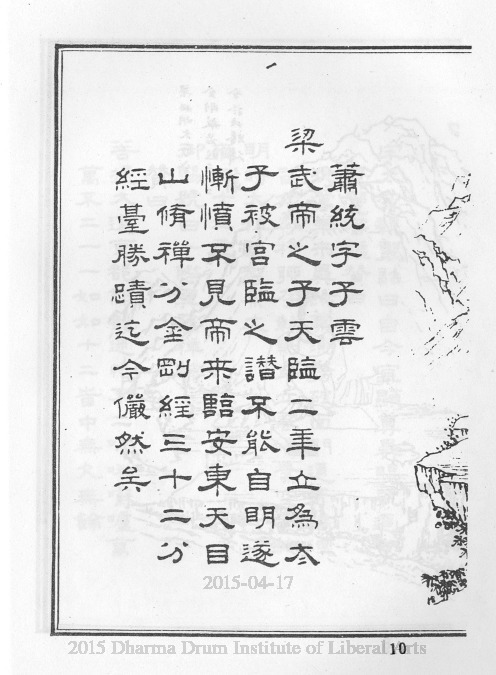 蕭統字子雲
梁武帝之子天監二年立為太
子被宮監之譖不能自明遂
慚憤不見帝来臨安東天目
山脩禪分金剛經三十二分
經臺勝蹟迄今儼然矣
2015-04-17
2015 Dharma Drum Institute of Liberal Arts
10